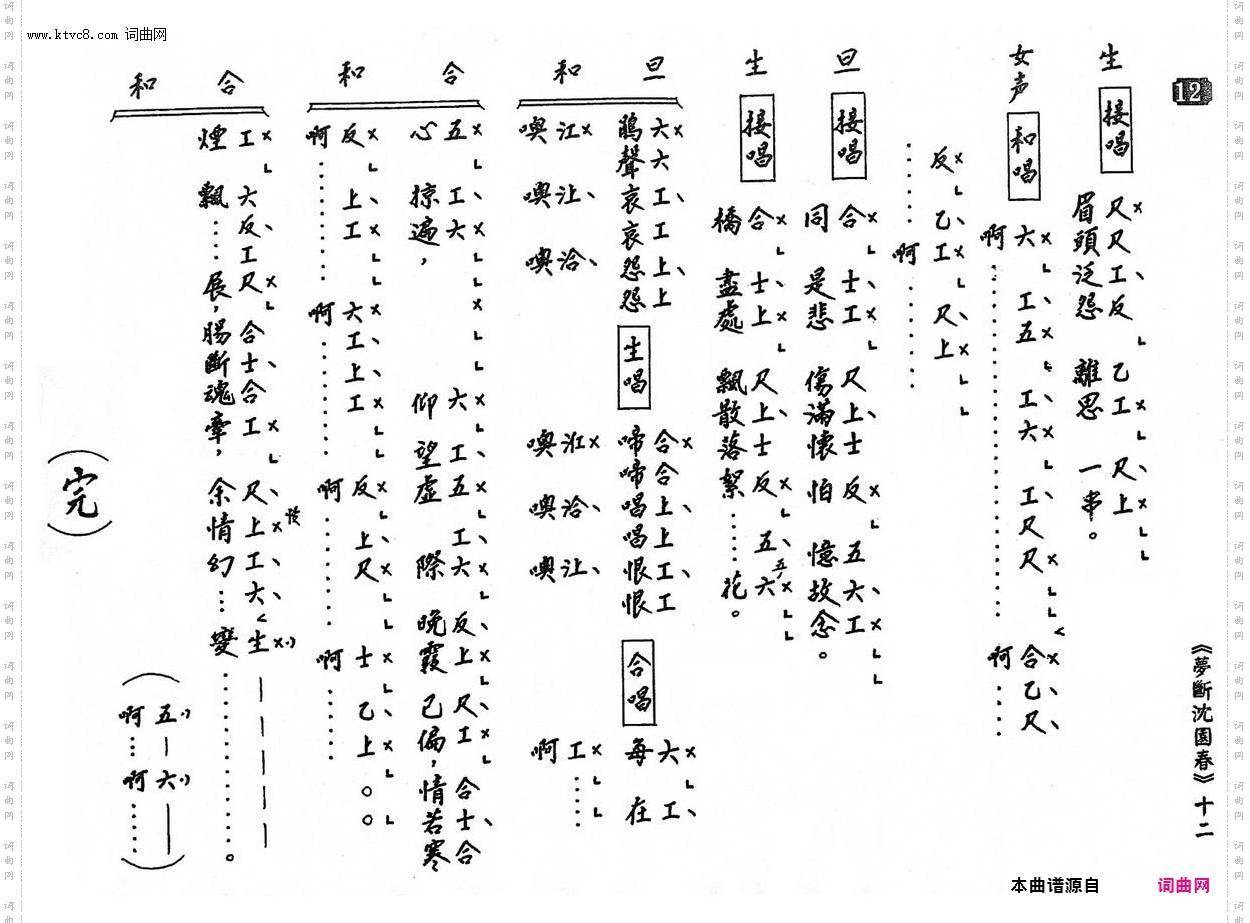 www.ktvc8.com 词曲网
12
《夢斷沈園春》十二
生 接唱
尺尺工反 乙工 尺上
眉頭泛怨 離思 一串。
女声 和唱
六 工五 工六 工尺尺 合乙尺
啊 啊
反 乙工 尺上
啊
旦 接唱
合 士工 尺上士 反 五六工
同 是悲 傷滿懷 怕 憶故念。
生 接唱
合 士上 尺上士 反 五五六
橋 盡處 飄散落絮……花。
旦
六六工工上上
鵑聲哀哀怨怨
生唱
合合上上工工
啼啼唱唱恨恨
合唱
六 工
每 在
和
江 让 洽
噢 噢 噢
洰 洽 让
噢 噢 噢
工
啊
合
五 工六 六 工五 工六 反上 尺工 合士合
心 掠遍, 仰 望虛 際 晚霞 已偏,情若寒
和
反 上工 六工上工 反 上尺 士 乙上
啊 啊 啊 啊
合
工 六反工尺 合士合工 尺上工六生
煙 飄……展,腸斷魂牽,余情幻…變
和
(五 六)
(啊…啊……)
(完)
本曲谱源自 词曲网